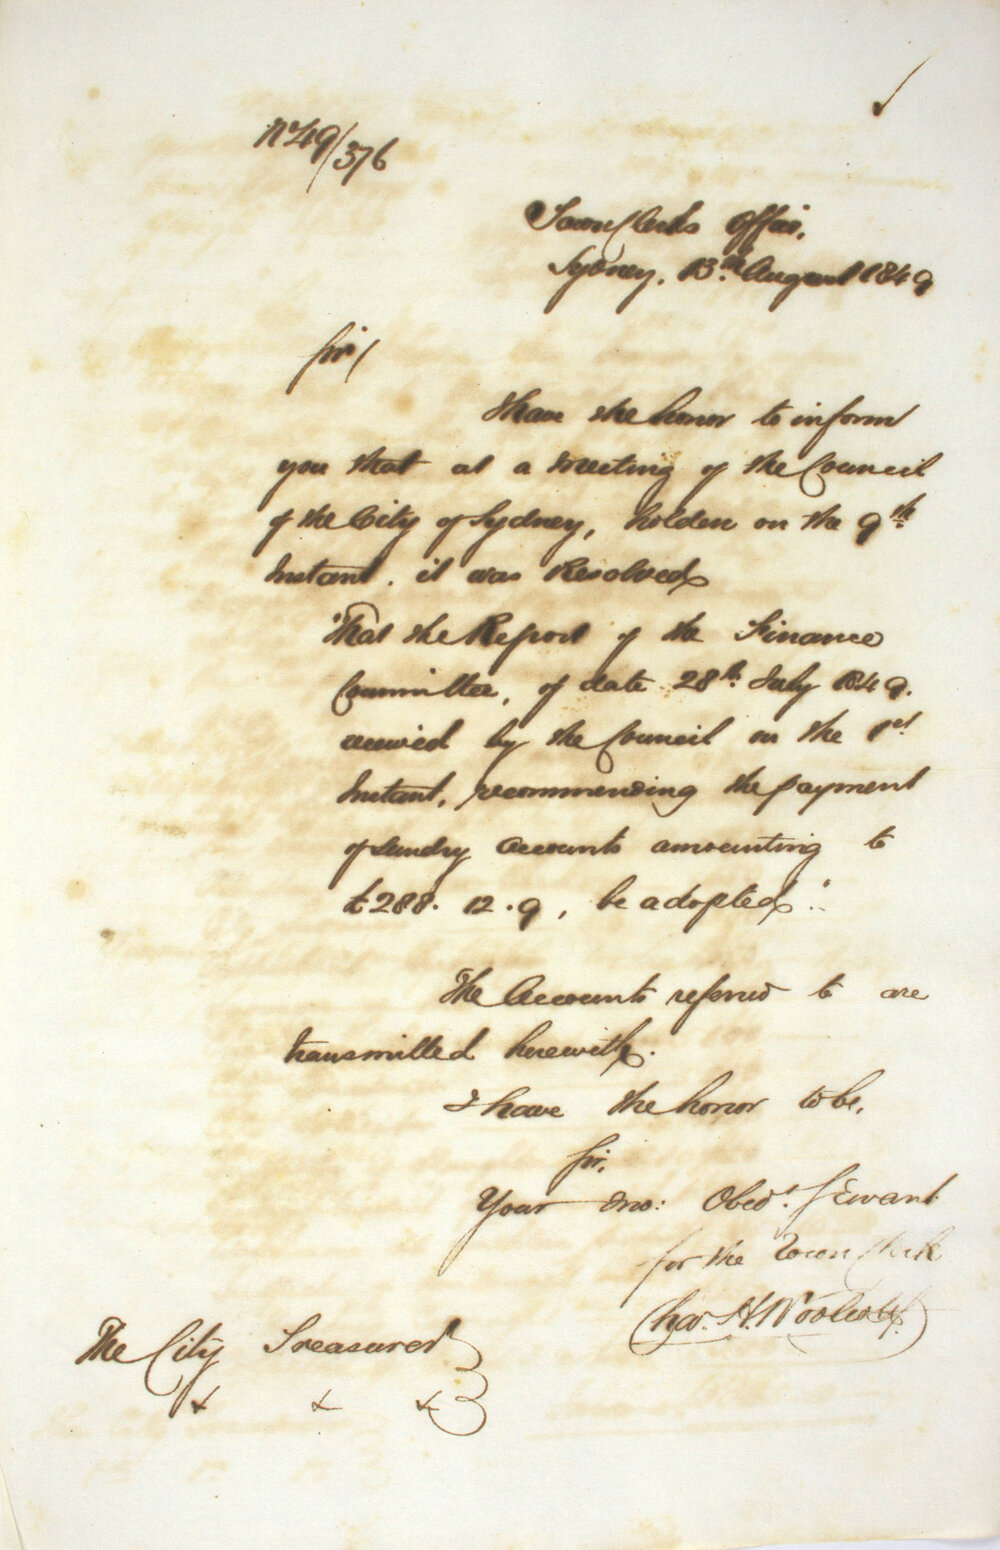 No 49/376
Town Clerks Office,
Sydney, 13th August 1849
Sir,
I have the honor to inform
you that at a Meeting of the Council
of the City of Sydney, holden on the 9th
Instant, it was Resolved
"That the Report of the Finance
Committee, of date 28th July 1849.
received by the Council on the 1st
Instant, recommending the payment
of Sundry Accounts amounting to
£288. 12. 9, be adopted."
The Accounts referred to are
transmitted herewith.
I have the honor to be,
Sir,
Your mo: Obedt. Servant
for the Town Clerk
Chas. H. Woolcott
The City Treasurer